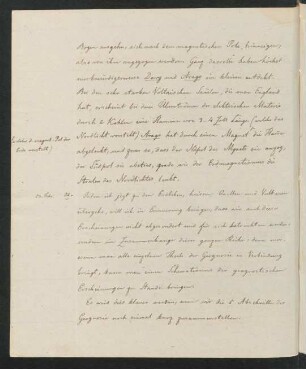 Bogen umgeben, sich nach dem magnetischen Pole
also von ihm angezogen werden. Ganz dasselbe haben höchst
merkwürdigerweise Davy und Arago im kleinen entdeckt.
Bei der sehr starken Voltaischen Säulen, die man England
hat, erscheint bei dem Phänomene der Elektrischen Materie
durch 2 Kohlen eine Flamme von 3-4 Zoll Länge (welche das
Nordlicht vorstellt) Arago hat durch einen Magnet die Flamme
abgelenkt, und zwar so, dass der Südpol des Magnets sie
der Nordpol sie grade wie der Erdmagnetismus die
Strahlen des Nordlichtes
Indem ich zu den Erdbeben, heissen Quellen und Vulkanen
übergehe, will ich in Erinnerung bringen, dass wie auch diese
Erscheinungen nicht abgesondert und für sich betrachtet werden,
sondern im Zusammenhange dieser ganzen Reihe: denn nur
wenn man alle einzelnen Theile der Geognosie in Verbindung
bringt, kann man eine Übersicht der geognostischen
Erscheinungen zu Stande bringen.
Es wird dies klarer werden, wenn wir die 5 Abschnitte der
Geognosie noch einmal kurz zusammenstellen.